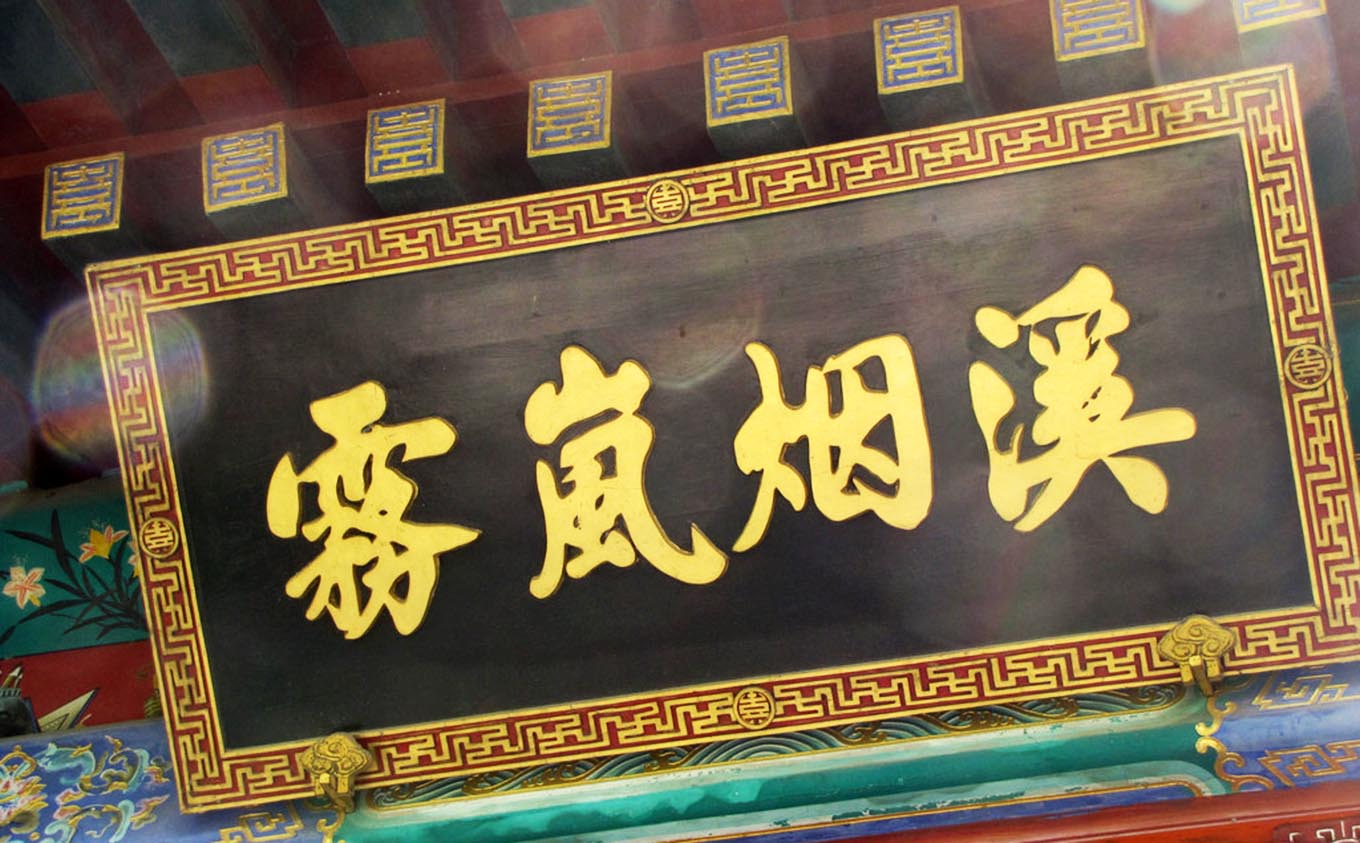 溪烟嵐霧